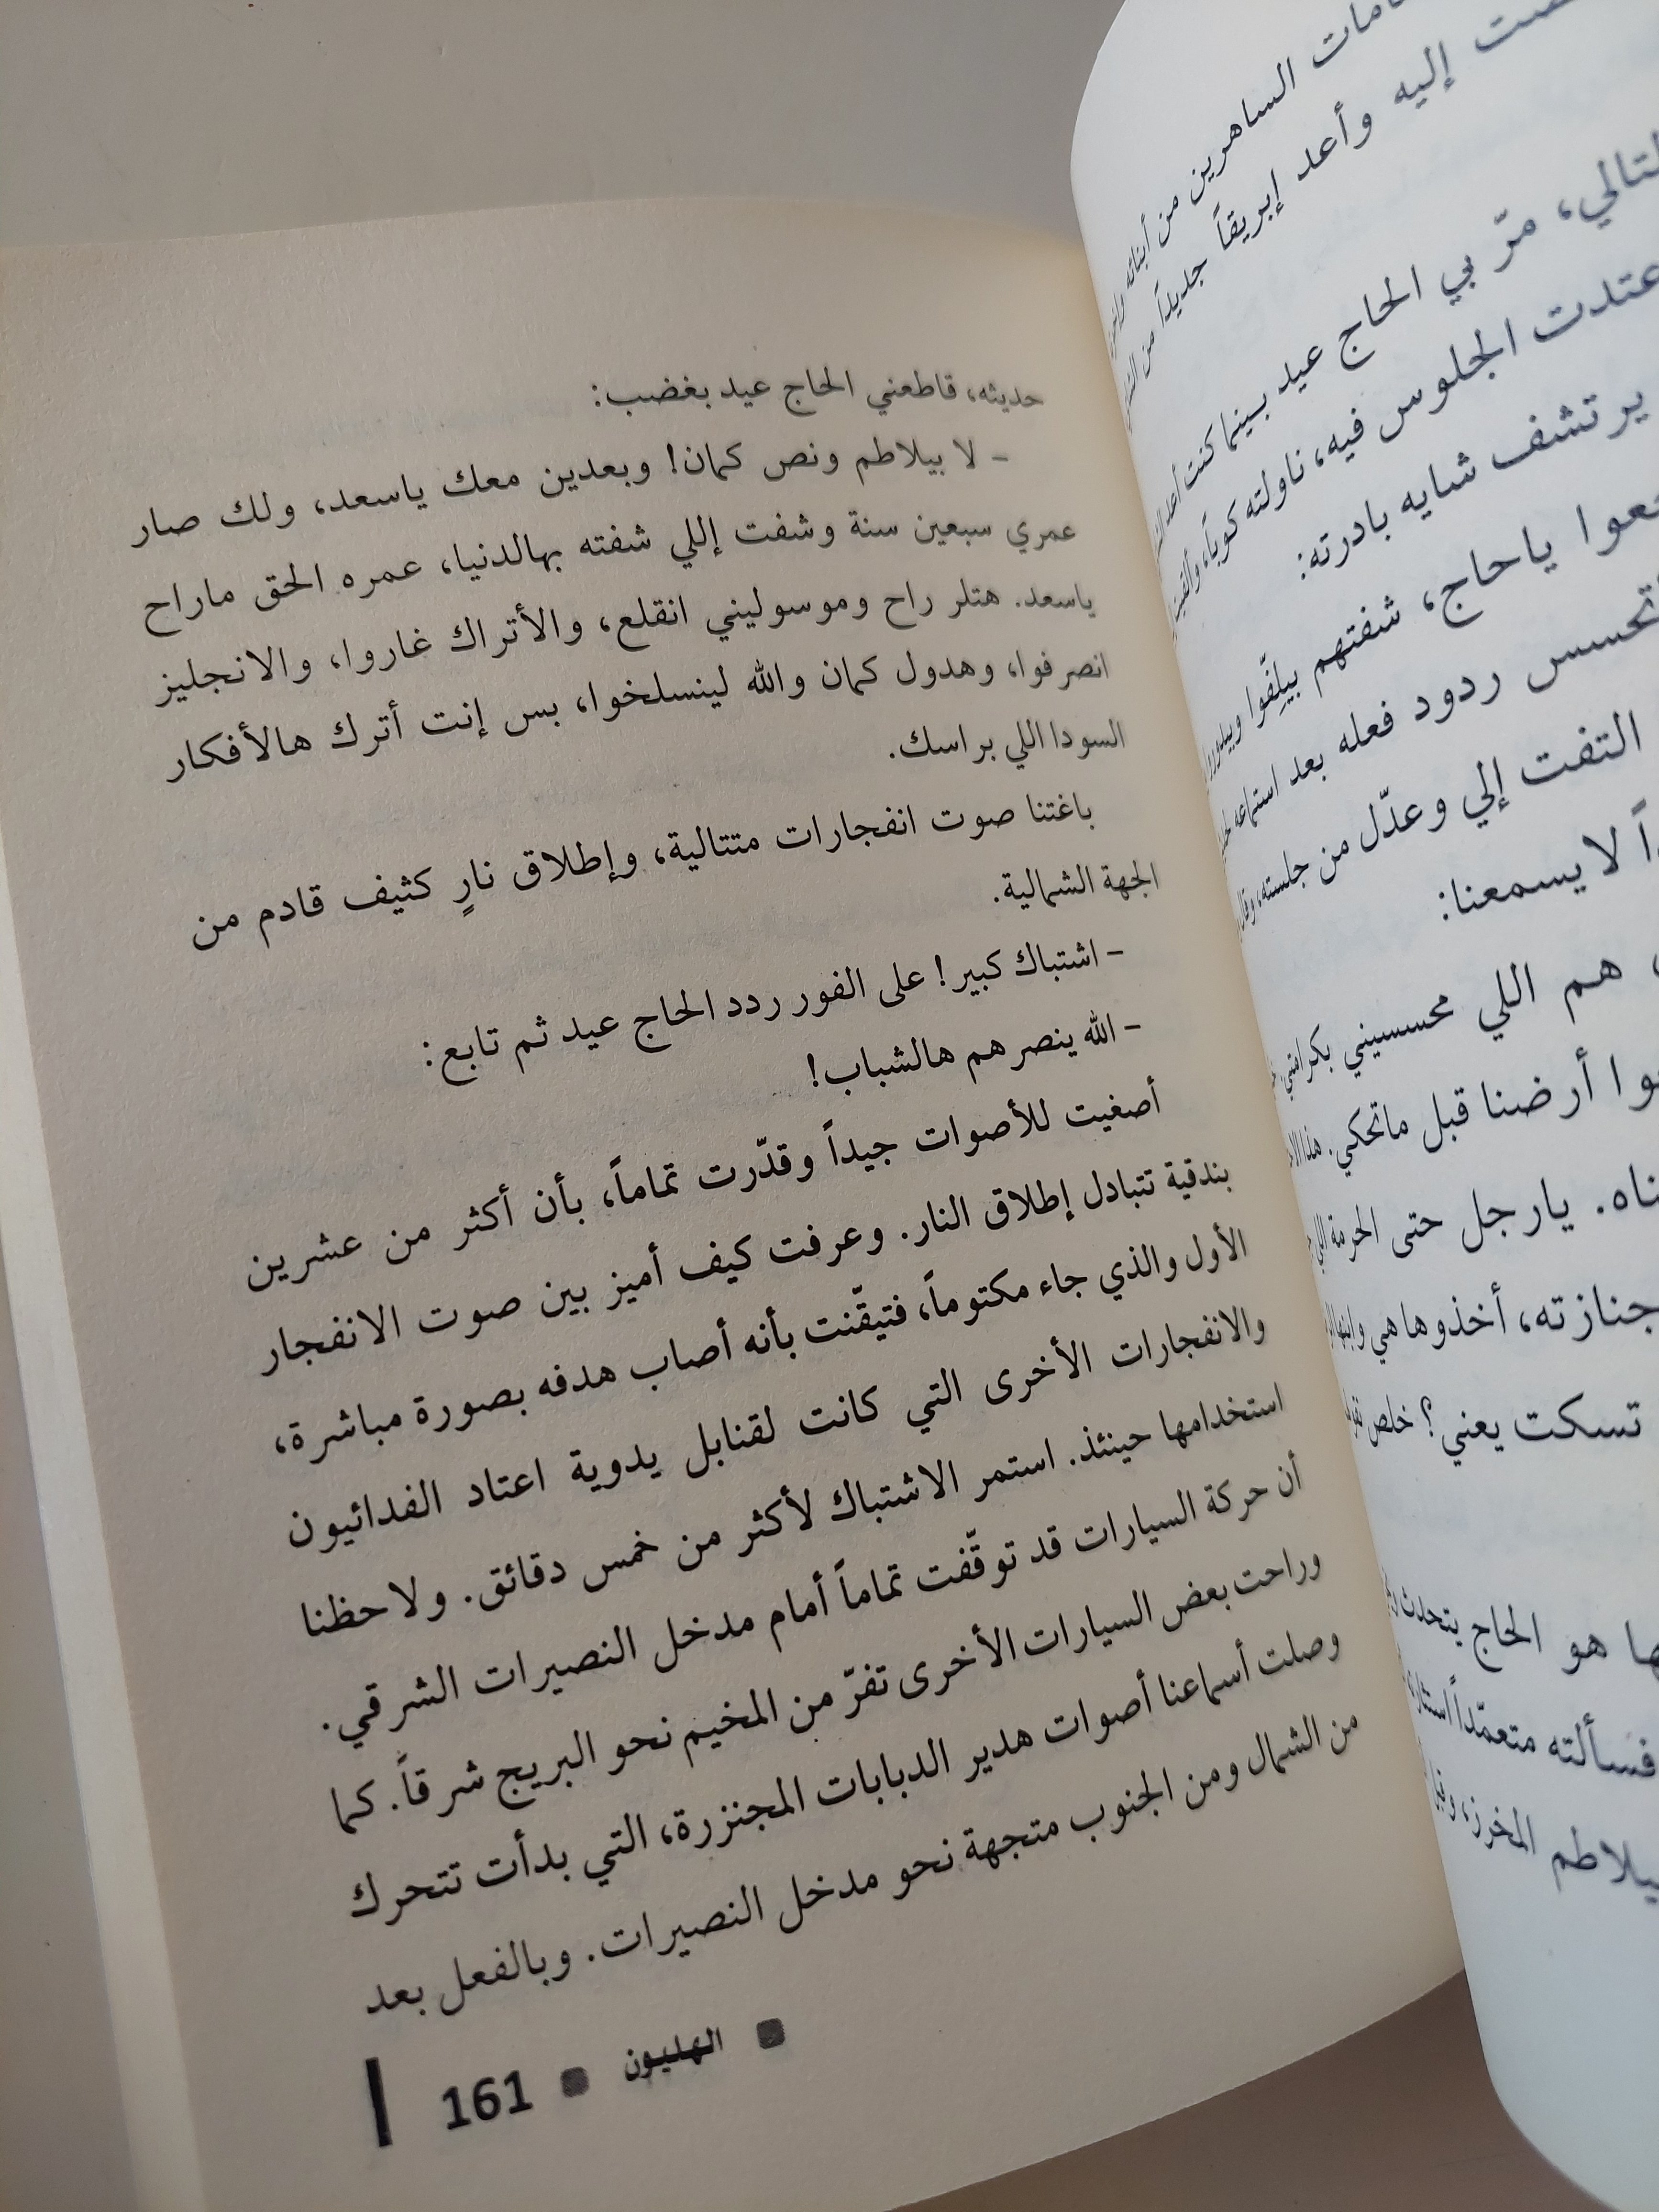 حديثه، قاطعني الحاج عيد بغضب:
- لا بيلاطم ونص كمان! وبعدين معك ياسعد، ولك صار
عمري سبعين سنة وشفت إللي شفته بهالدنيا، عمره الحق ماراح
ياسعد. هتلر راح وموسوليني انقلع، والأتراك غاروا، والانجليز
انصرفوا، وهدول كمان والله لينسلخوا، بس إنت أترك هالأفكار
السودا اللي براسك.
باغتنا صوت انفجارات متتالية، وإطلاق نارٍ كثيف قادم من
الجهة الشمالية.
- اشتباك كبير! على الفور ردد الحاج عيد ثم تابع:
- الله ينصرهم هالشباب!
أصغيت للأصوات جيداً وقدّرت تماماً، بأن أكثر من عشرين
بندقية تتبادل إطلاق النار. وعرفت كيف أميز بين صوت الانفجار
الأول والذي جاء مكتوماً، فتيقّنت بأنه أصاب هدفه بصورة مباشرة،
والانفجارات الأخرى التي كانت لقنابل يدوية اعتاد الفدائيون
استخدامها حينئذ. استمر الاشتباك لأكثر من خمس دقائق. ولاحظنا
أن حركة السيارات قد توقّفت تماماً أمام مدخل النصيرات الشرقي.
وراحت بعض السيارات الأخرى تفرّ من المخيم نحو البريج شرقاً. كما
وصلت أسماعنا أصوات هدير الدبابات المجنزرة، التي بدأت تتحرك
من الشمال ومن الجنوب متجهة نحو مدخل النصيرات. وبالفعل بعد
الهليون
161
الساهرين من أبنائه
إليه وأعد إبريقاً جديداً من
مرّ بي الحاج عيد بينما كنت أعد
الجلوس فيه، ناولته كوباً،
يرتشف شايه بادرته:
ياحاج، شفتهم بيلِفّوا
ردود فعله بعد استماعه
التفت إلي وعدّل من جلسته،
لا يسمعنا:
هم اللي محسسيني بكرامتي
أرضنا قبل ماتحكي.
يارجل حتى الحرمة
جنازته، أخذوها هي
تسكت يعني؟ خلص
هو الحاج يتحدث
فسألته متعمّداً
المخرز،